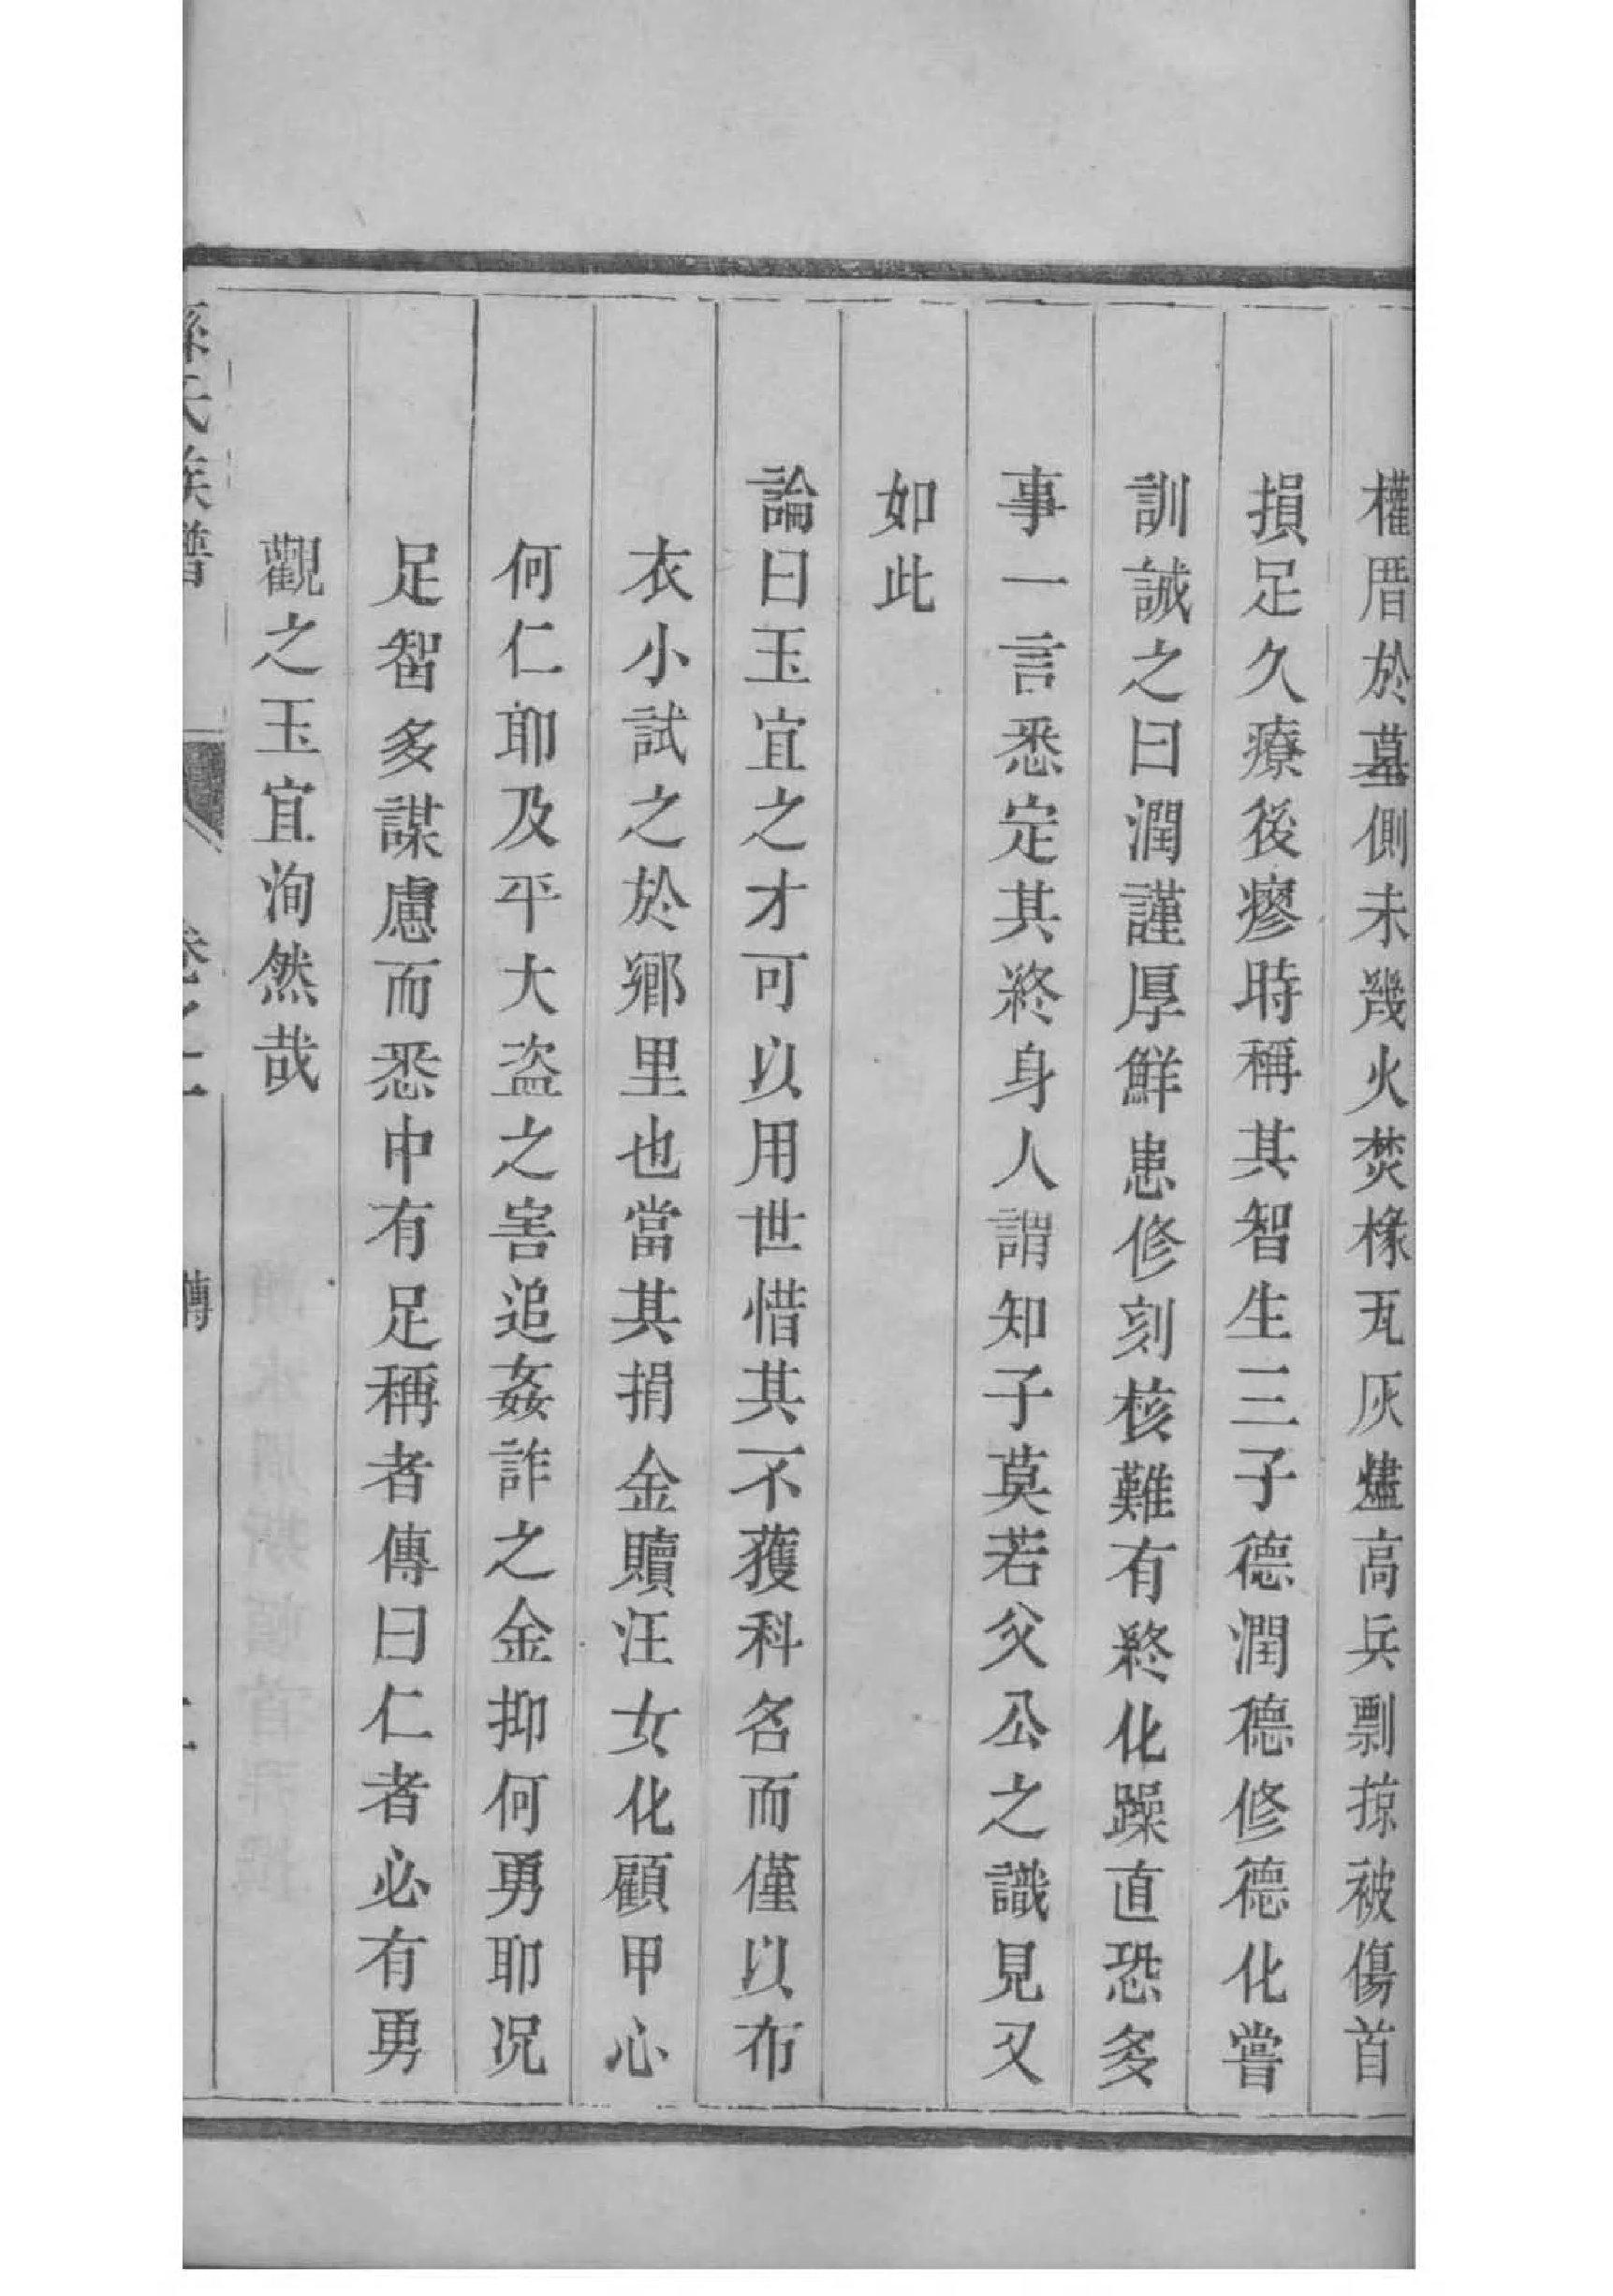 權厝於墓側未幾火焚椽瓦灰燼高兵剽掠被傷首
損足久療後瘳時稱其智生三子德潤德修德化嘗
訓誡之曰潤謹厚鮮患修刻核難有終化躁直恐多
事一言悉定其終身人謂知子莫若父公之識見又
如此
論曰玉宜之才可以用世惜其不獲科名而僅以布
衣小試之於鄉里也當其捐金贖汪女化顧甲心
何仁耶及平大盜之害追姦詐之金抑何勇耶况
足智多謀慮而悉中有足稱者傳曰仁者必有勇
觀之玉宜洵然哉
孫氏族譜 卷之二 傳